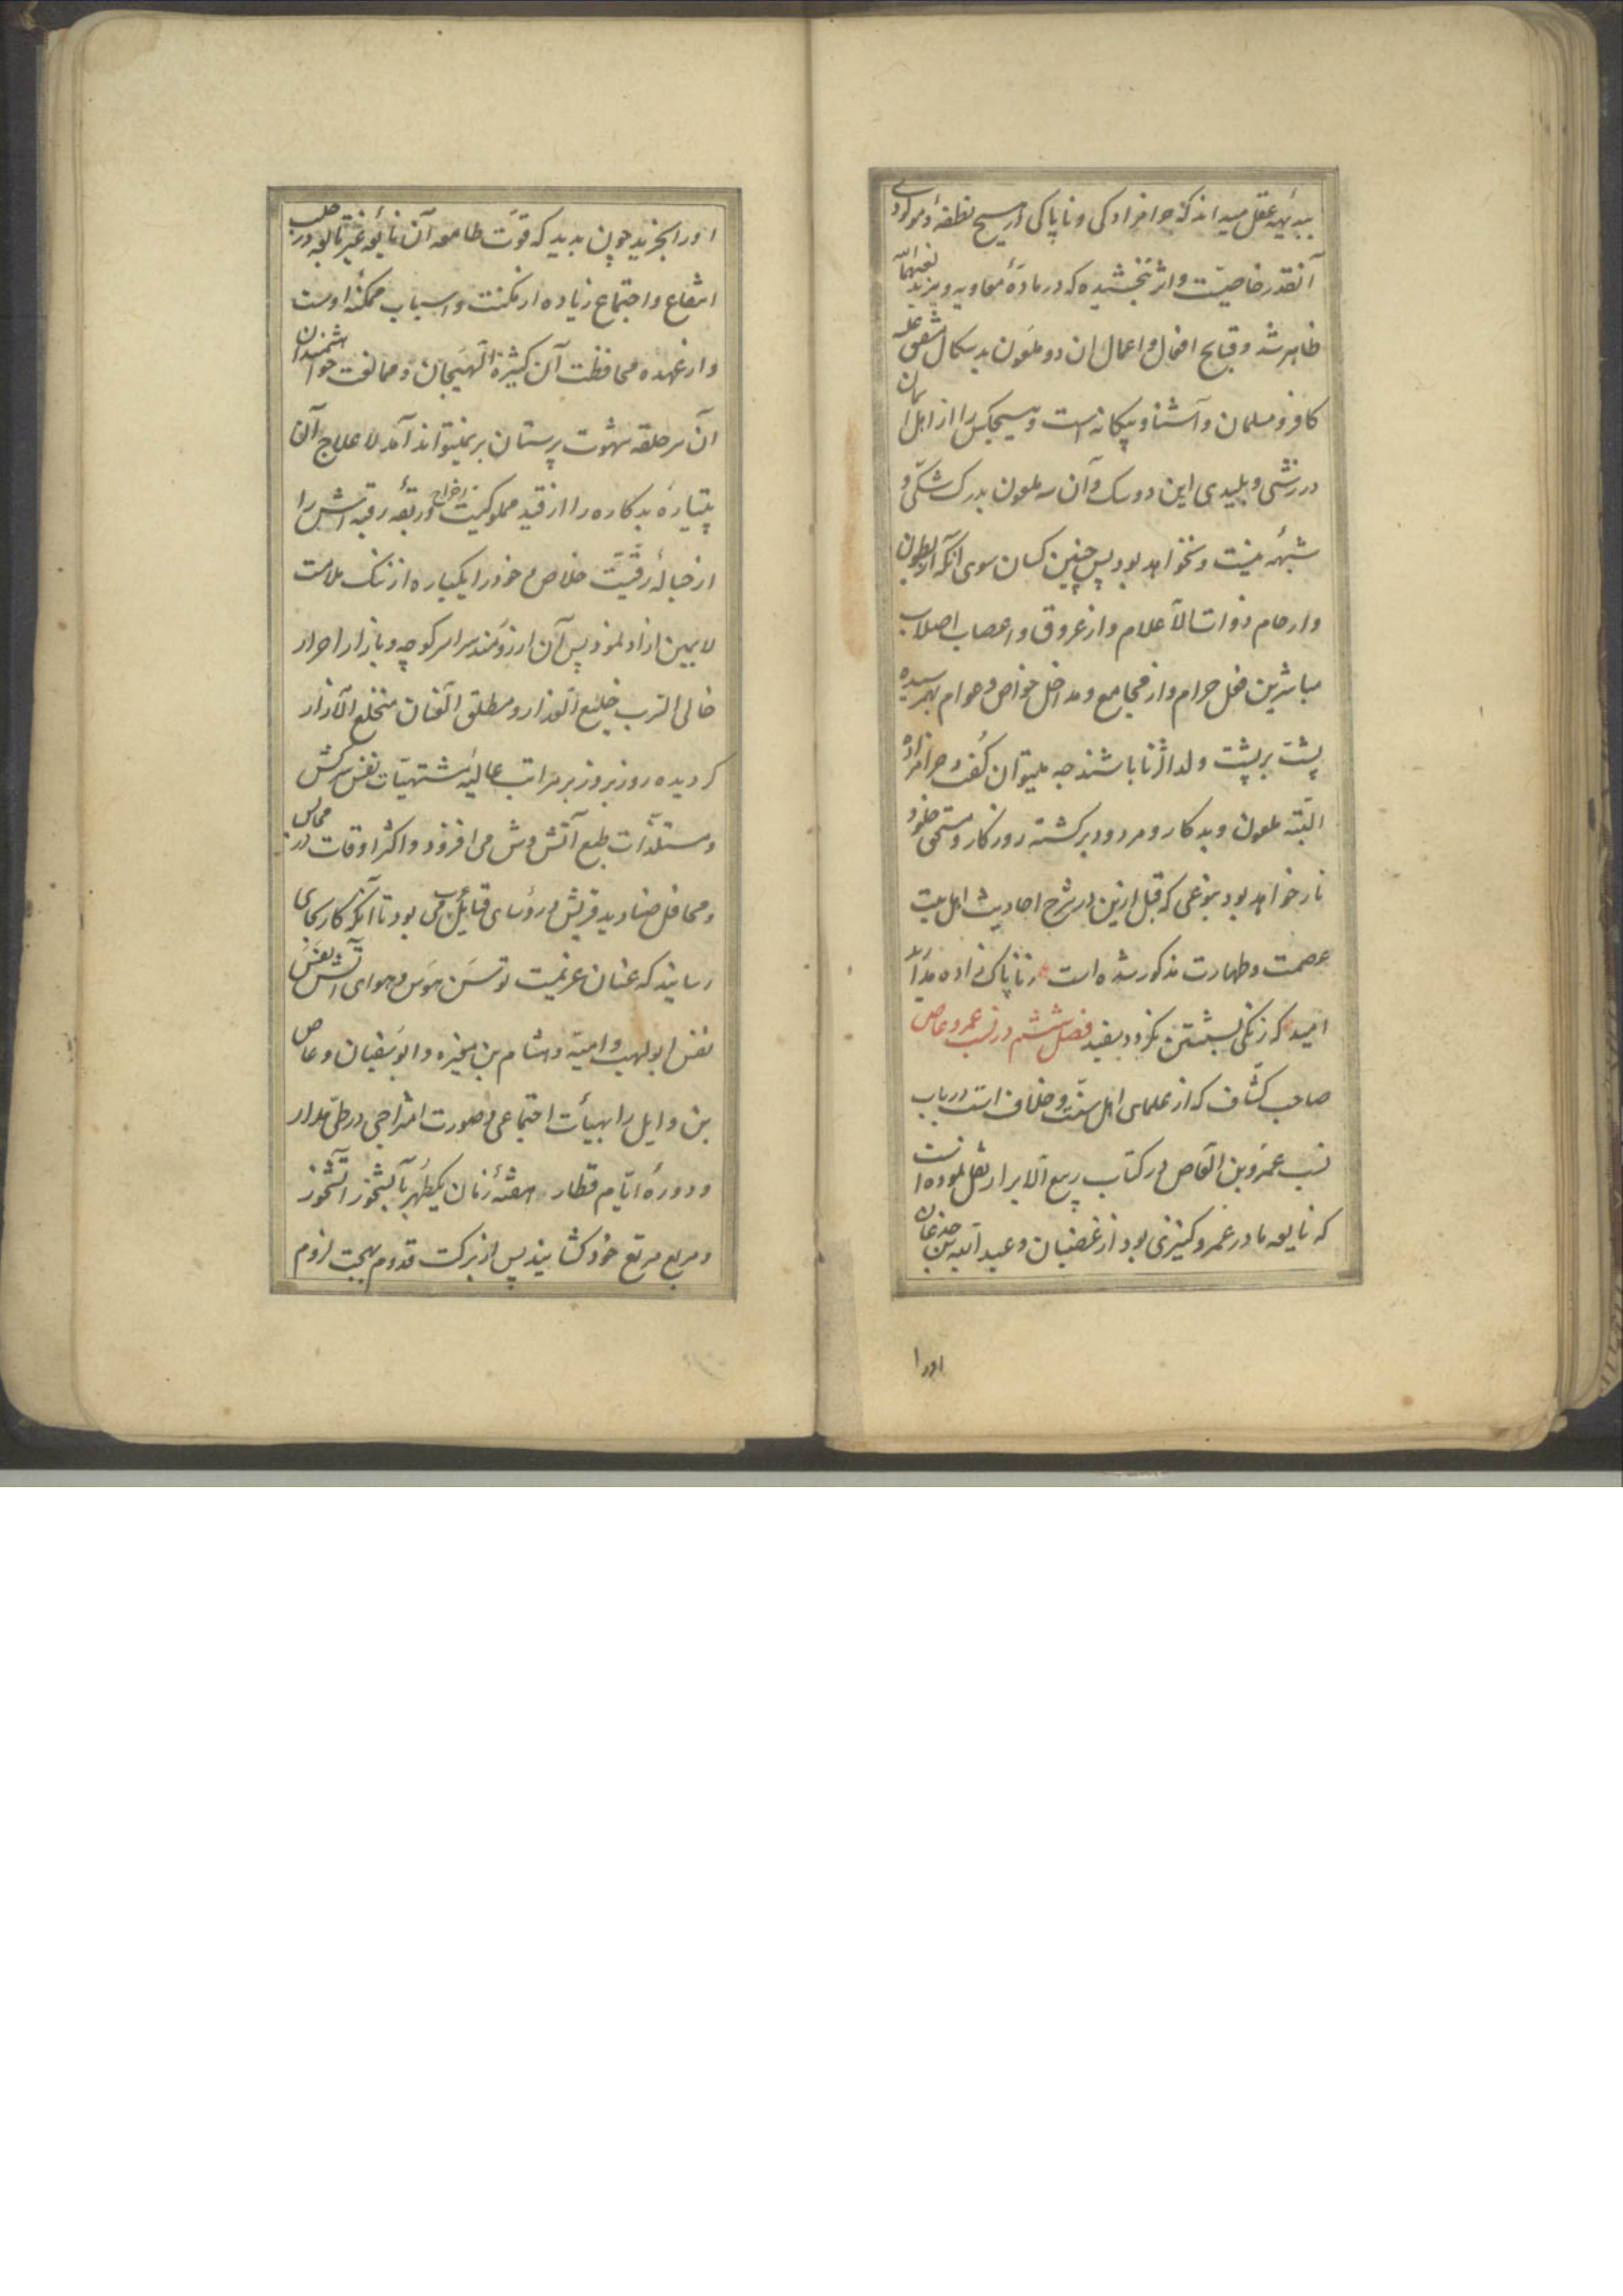 ببدیهه عقل میداند که حرامزادکی و ناپاکی در هیچ نطفهٔ و مولودی
آنقدر خاصیت و اثر نبخشیده که در مادهٔ معاویه و یزید لعنهما الله
ظاهر شد و قبایح افعال و اعمال ان دو ملعون بدسکال متفق علیه
کافر و مسلمان و آشنا و بیکانه است و هیچکس را از اهل ایمان
در زشتی و پلیدی این دو سک و آن سه ملعون بدرک شکی و
شبهه نیست و نخواهد بود پس چنین کسان سوی انکه از بطون
و ارحام ذوات الاعلام و از عروق و اعصاب اصلاب
مباشرین فعل حرام و از مجامع و مداخل خواص و عوام بهم رسیده
پشت بر پشت ولد الزنا باشند چه میتوان کفت و حرامزاده
البته ملعون و بدکار و مردود برکشته روزکار و مستحق خلود
نار خواهد بود بنوعی که قبل ازین در شرح احادیث اهل بیت
عصمت و طهارت مذکور شده است ز ناپاک زاده مدارید
امید که زنکی بشستن نکردد سفید فصل ششم در نسب عمرو عاص
صاحب کشاف که از علمای اهل سنت و خلاف است در باب
نسب عمرو بن العاص در کتاب ربیع الابرار نقل نموده است
که نابغه مادر عمرو کنیزی بود از غضبان و عبد الله بن جدعان
اورا
اورا بخرید چون بدید که قوت طامعه آن نابغه غیر تابعه در جلب
انتفاع و اجتماع زیاده از مکنت و اسباب ممکنه اوست
و از عهده محافظت آن کثیرة الهیجان و ممانعت خواهشمندان
آن سر حلقه شهوت پرستان بر نمیتواند آمد لاعلاج آن
پتیاره بدکاره را از قید مملوکیت اخراج و ربقه رقبه اش را
از حباله رقیت خلاص و خود را یکباره از ننک ملامت
لایمین ازاد نمود پس آن ارزومند سراسر کوچه و بازار احرار
خالی الترب خلیع العذار و مطلق العنان منخلع الازار
کردیده روز بروز بر مراتب عالیه مشتهیات نفس سرکش
و مستلذات طبع آتش وش می افزود و اکثر اوقات در مجالس
و محافل صنادید قریش و رؤسای قبایل عرب می بود تا آنکه کار بجای
رسانید که عنان عزیمت توسن هوس و هوای آتش نفس
نفر ابو لهب و امیه و هشام بن مغیره و ابو سفیان و عاص
بن وایل را بهیأت اجتماعی و صورت امتزاجی در طی مدار
و دوره ایام قطار هفته زنان یکطهر بآبشخور
و مربع مرتع خود کشانید پس از برکت قدوم بهجت لزوم